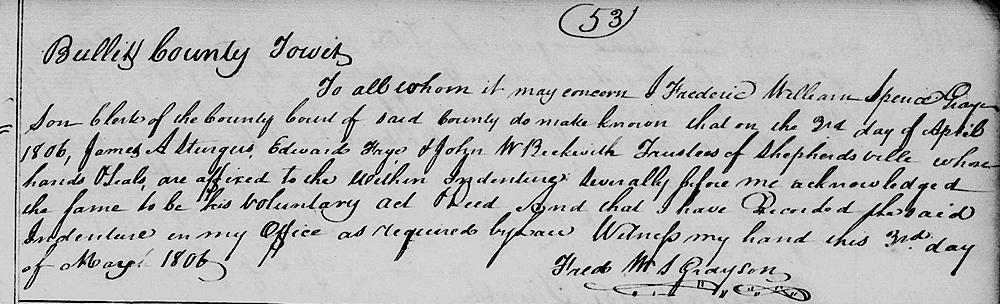 53
Bullitt County Towit
To all whom it may concern I Frederic William Spence Gray
Son Clerk of the County Court of said County do make known that on the 3rd day of April
1806, James A Sturgus, Edward Frye & John W Beckwith Trustees of Shepherdsville whose
hands & Seals, are affixed to the within Indenture Severally before me acknowledged
the same to be his voluntary act & Deed And that I have Recorded the said
Indenture in my Office as required by Law Witness my hand this 3rd day
of May 1806
Fred W S Grayson